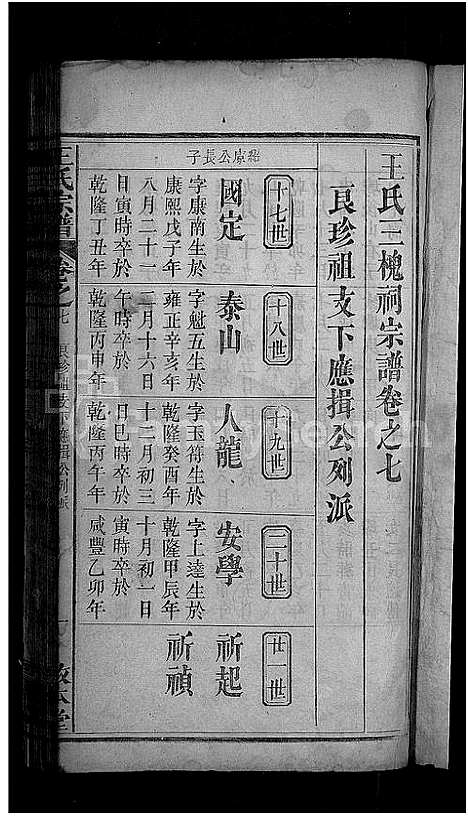 王氏三槐祠宗譜卷之七
良珍祖支下應揖公列派
十七世
紹康公長子
國定
字康南生於
康熙戊子年
八月二十一
日寅時卒於
乾隆丁丑年
十八世
泰山
字魁五生於
雍正辛亥年
二月十六日
午時卒於
乾隆丙申年
十九世
人龍
字玉符生於
乾隆癸酉年
十二月初三
日巳時卒於
乾隆丙午年
二十世
安學
字上達生於
乾隆甲辰年
十月初一日
寅時卒於
咸豐乙卯年
廿一世
祈起
祈禎
王氏宗譜
卷之七
良珍祖支下應揖公列派